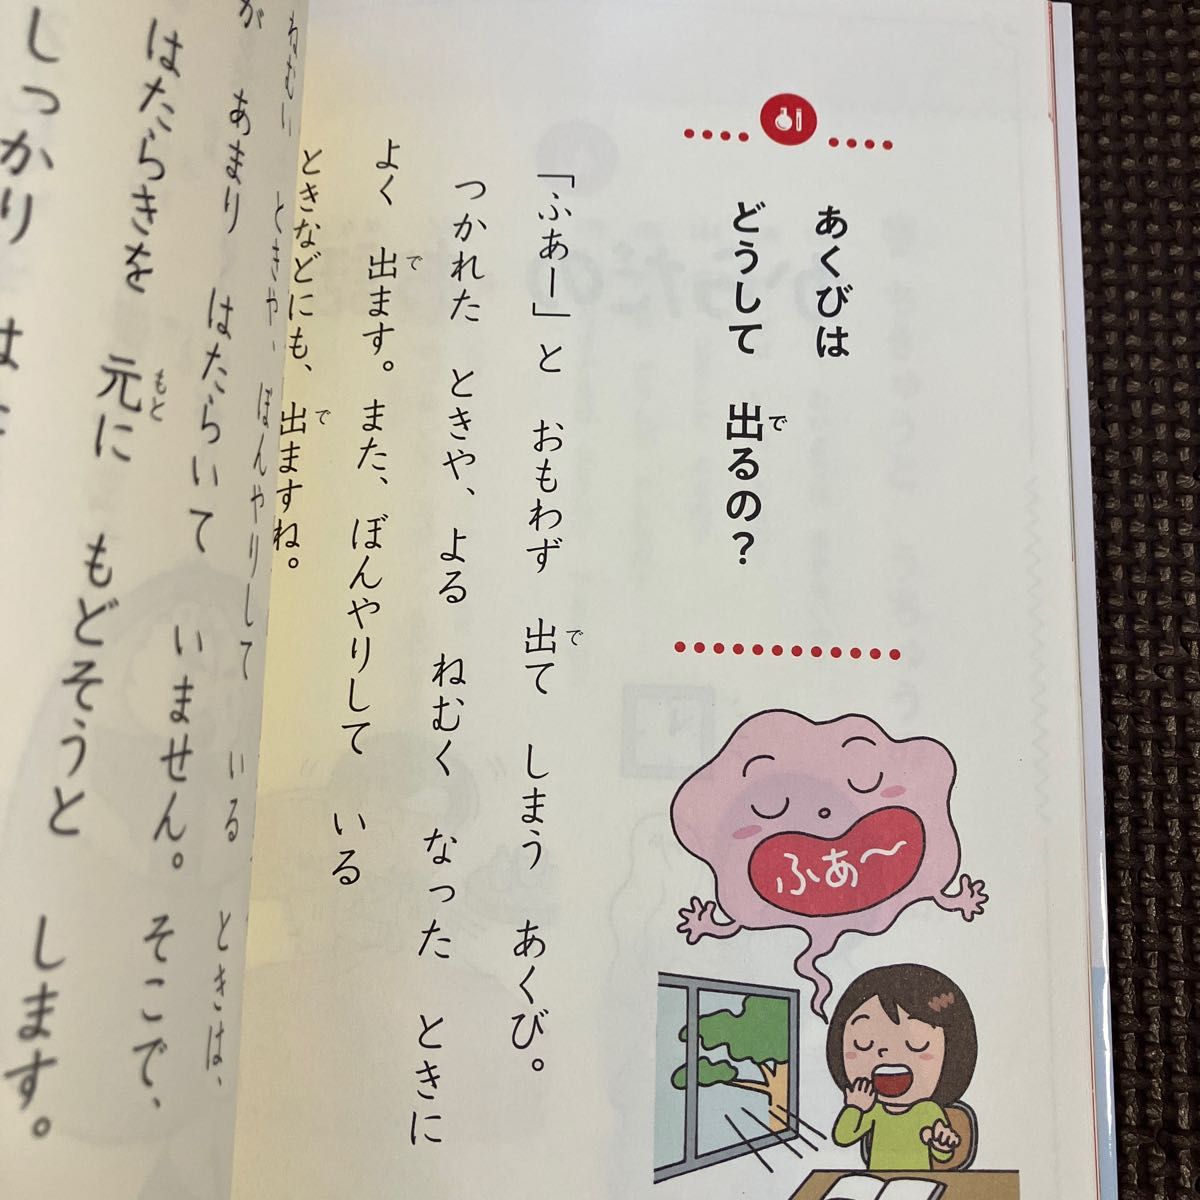 あくびは
どうして 出るの？
で
「ふぁー」と おもわず 出て しまう あくび。
で
つかれた ときや、よる ねむく なった ときに
よく 出ます。また、ぼんやりして いる
で
ときなどにも、出ますね。
で
ふぁ〜
ねむい ときや、ぼんやりして いる ときは、
が あまり はたらいて いません。そこで、
はたらきを 元に もどそうと
もと
しっかり は
します。